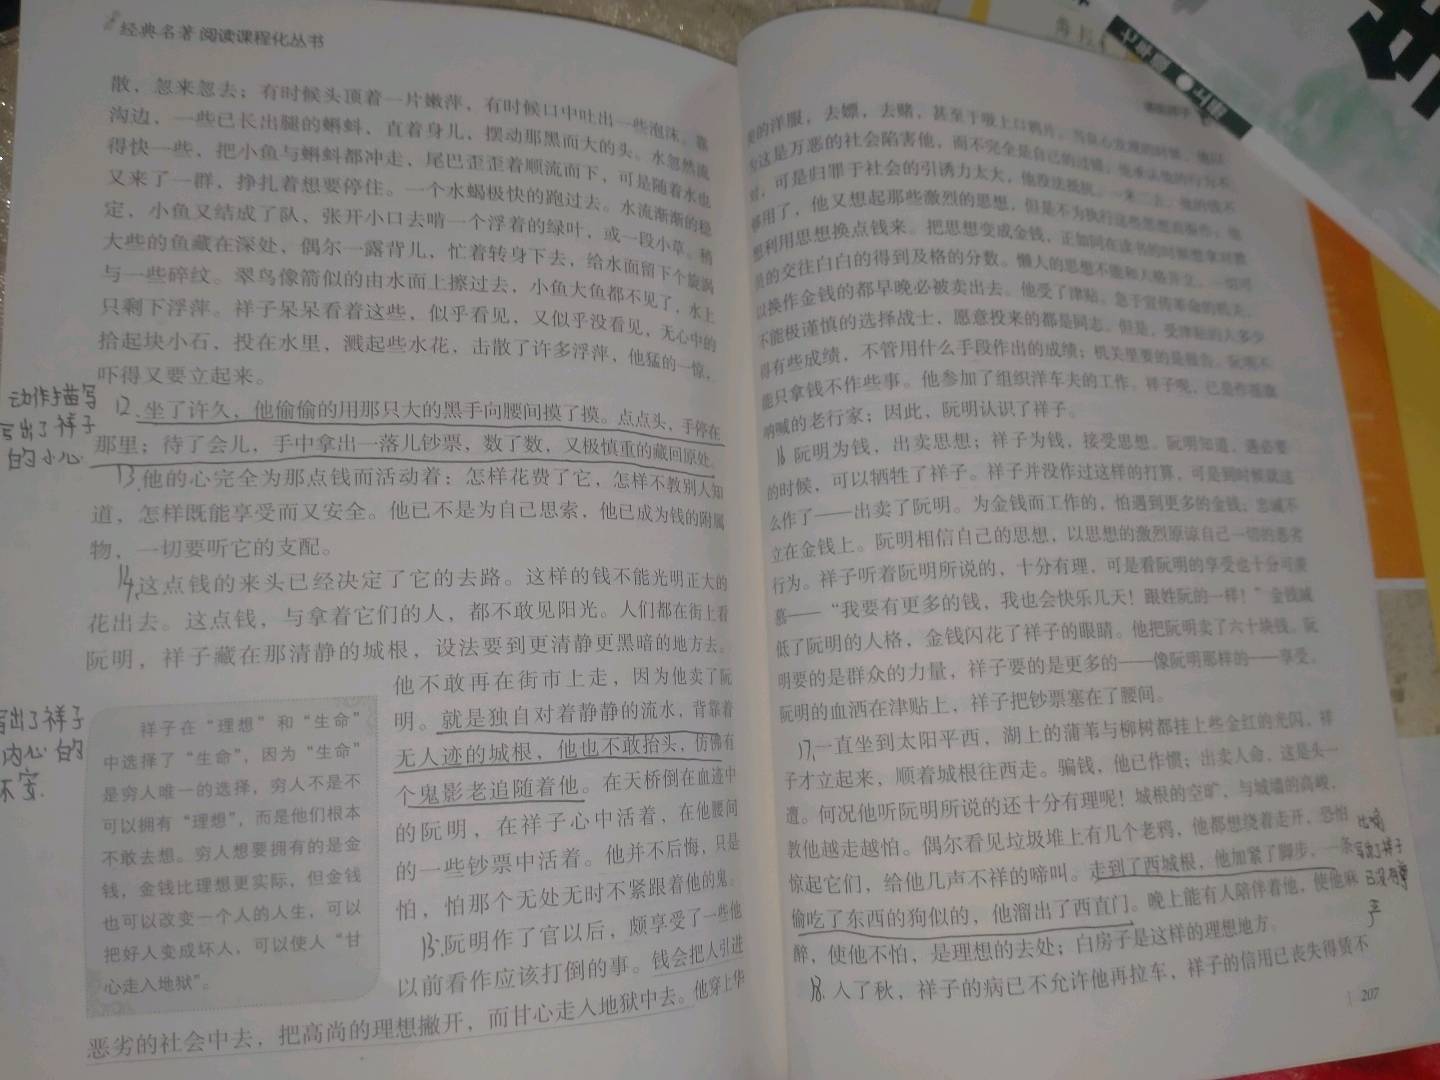 经典名著 阅读课程化丛书
散，忽来忽去；有时候头顶着一片嫩萍，有时候口中吐出一些泡沫。靠
沟边，一些已长出腿的蝌蚪，直着身儿，摆动那黑而大的头。水忽然流
得快一些，把小鱼与蝌蚪都冲走，尾巴歪歪着顺流而下，可是随着水也
又来了一群，挣扎着想要停住。一个水蝎极快的跑过去。水流渐渐的稳
定，小鱼又结成了队，张开小口去啃一个浮着的绿叶，或一段小草。稍
大些的鱼藏在深处，偶尔一露背儿，忙着转身下去，给水面留下个旋涡
与一些碎纹。翠鸟像箭似的由水面上擦过去，小鱼大鱼都不见了，水上
只剩下浮萍。祥子呆呆看着这些，似乎看见，又似乎没看见，无心中的
拾起块小石，投在水里，溅起些水花，击散了许多浮萍，他猛的一惊，
吓得又要立起来。
动作描写
写出了祥子
的小心
12.坐了许久，他偷偷的用那只大的黑手向腰间摸了摸。点点头，手停在
那里；待了会儿，手中拿出一落儿钞票，数了数，又极慎重的藏回原处。
13.他的心完全为那点钱而活动着：怎样花费了它，怎样不教别人知
道，怎样既能享受而又安全。他已不是为自己思索，他已成为钱的附属
物，一切要听它的支配。
14.这点钱的来头已经决定了它的去路。这样的钱不能光明正大的
花出去。这点钱，与拿着它们的人，都不敢见阳光。人们都在街上看
阮明，祥子藏在那清静的城根，设法要到更清静更黑暗的地方去。
他不敢再在街市上走，因为他卖了阮
明。就是独自对着静静的流水，背靠着
无人迹的城根，他也不敢抬头，仿佛有
个鬼影老追随着他。在天桥倒在血迹中
的阮明，在祥子心中活着，在他腰间
的一些钞票中活着。他并不后悔，只是
怕，怕那个无处无时不紧跟着他的鬼。
15.阮明作了官以后，颇享受了一些他
以前看作应该打倒的事。钱会把人引进
恶劣的社会中去，把高尚的理想撇开，而甘心走入地狱中去。他穿上华
写出了祥子
内心的
不安.
祥子在“理想”和“生命”
中选择了“生命”，因为“生命”
是穷人唯一的选择，穷人不是不
可以拥有“理想”，而是他们根本
不敢去想。穷人想要拥有的是金
钱，金钱比理想更实际，但金钱
也可以改变一个人的人生，可以
把好人变成坏人，可以使人“甘
心走入地狱”。
美的洋服，去嫖，去赌，甚至于吸上口鸦片。当良心发现的时候，他以
为这是万恶的社会陷害他，而不完全是自己的过错；他承认他的行为不
对，可是归罪于社会的引诱力太大，他没法抵抗。一来二去，他的钱不
够用了，他又想起那些激烈的思想，但是不为执行这些思想而振作；他
想利用思想换点钱来。把思想变成金钱，正如同在读书的时候想拿对教
员的交往白白的得到及格的分数。懒人的思想不能和人格并立，一切可
以换作金钱的都早晚必被卖出去。他受了津贴。急于宣传革命的机关，
不能极谨慎的选择战士，愿意投来的都是同志。但是，受津贴的人多少
得有些成绩，不管用什么手段作出的成绩；机关里要的是报告。阮明不
能只拿钱不作些事。他参加了组织洋车夫的工作。祥子呢，已是作摇旗
呐喊的老行家；因此，阮明认识了祥子。
16.阮明为钱，出卖思想；祥子为钱，接受思想。阮明知道，遇必要
的时候，可以牺牲了祥子。祥子并没作过这样的打算，可是到时候就这
么作了——出卖了阮明。为金钱而工作的，怕遇到更多的金钱；忠诚不
立在金钱上。阮明相信自己的思想，以思想的激烈原谅自己一切的恶劣
行为。祥子听着阮明所说的，十分有理，可是看阮明的享受也十分可羡
慕——“我要有更多的钱，我也会快乐几天！跟姓阮的一样！”金钱减
低了阮明的人格，金钱闪花了祥子的眼睛。他把阮明卖了六十块钱。阮
明要的是群众的力量，祥子要的是更多的——像阮明那样的——享受。
阮明的血洒在津贴上，祥子把钞票塞在了腰间。
17.一直坐到太阳平西，湖上的蒲苇与柳树都挂上些金红的光闪，祥
子才立起来，顺着城根往西走。骗钱，他已作惯；出卖人命，这是头一
遭。何况他听阮明所说的还十分有理呢！城根的空旷，与城墙的高峻，
教他越走越怕。偶尔看见垃圾堆上有几个老鸦，他都想绕着走开，恐怕
惊起它们，给他几声不祥的啼叫。走到了西城根，他加紧了脚步，一条
偷吃了东西的狗似的，他溜出了西直门。晚上能有人陪伴着他，使他麻
醉，使他不怕，是理想的去处；白房子是这样的理想地方。
18.入了秋，祥子的病已不允许他再拉车，祥子的信用已丧失得赁不
比喻
写出了祥子
已没有尊
严
207
七年级●下册